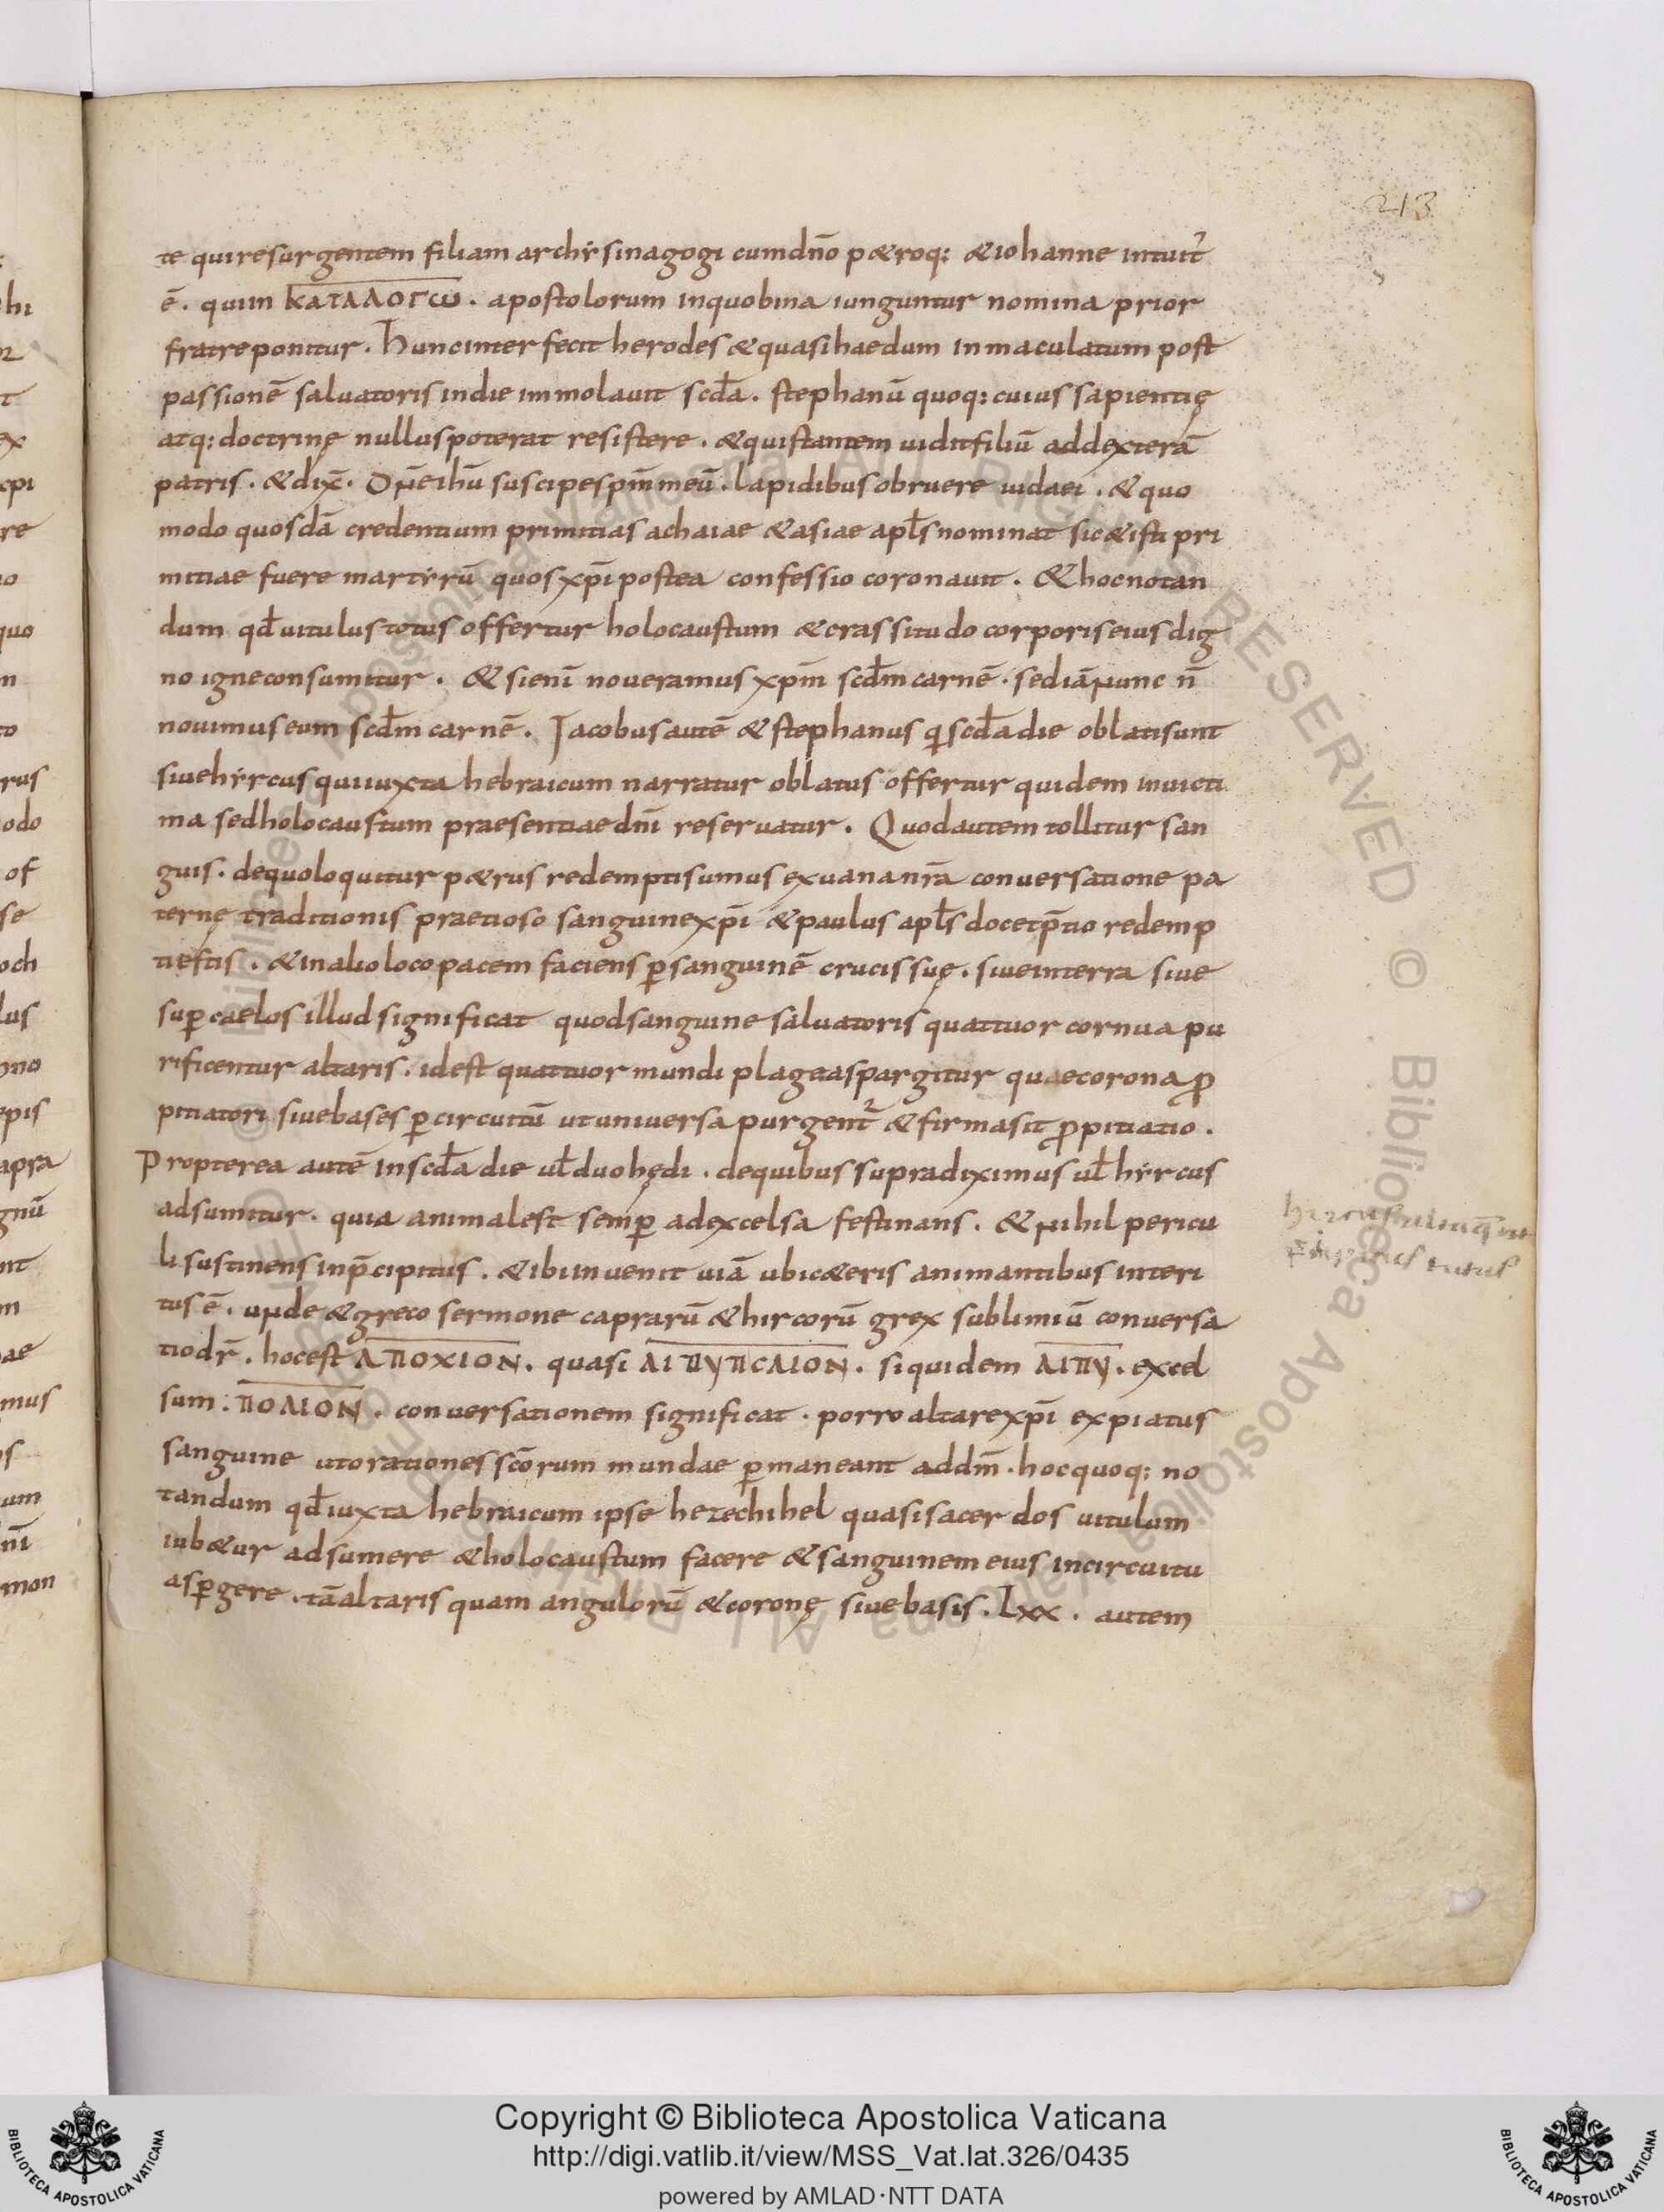 213
te qui resurgentem filiam archysinagogi cum dn̄o p&roq; & iohanne intuit᷑
ē. qui in ΚΑΤΑΛΟΓΩ. apostolorum in quo bina iunguntur nomina prior
fratre ponitur. Hunc interfecit herodes & quasi haedum inmaculatum post
passionē saluatoris in die immolauit scd̄a. stephanū quoq; cuius sapientię
atq; doctrinę nullus poterat resistere. & qui stantem uidit filiū ad dexterā
patris. & dix̄. Dn̄e ihū suscipe sp̄m meū. lapidibus obruere iudaei. & quo
modo quosdā credentium primitias achaiae & asiae apl̄s nominat sic & isti pri
mitiae fuere martyrū quos xp̄i postea confessio coronauit. & hoc notan
dum qd̄ uitulus totus offertur holocaustum & crassitudo corporis eius dig
no igne consumitur. & si enī noueramus xp̄m scd̄m carnē. sed iā nunc n̄
nouimus eum scd̄m carnē. Iacobus autē & stephanus qi scd̄a die oblati sunt
siue hyrcus qui iuxta hebraicum narratur oblatus offertur quidem in uicti
ma sed holocaustum praesentiae dn̄i reseruatur. Quod autem tollitur san
guis. de quo loquitur p&rus redempti sumus ex uana nr̄a conuersatione pa
ternę traditionis praetioso sanguine xp̄i & paulus apl̄s docet p̄tio redemp
ti estis. & in alio loco pacem faciens ꝑ sanguinē crucis suę. siue in terra siue
suꝑ caelos illud significat quod sanguine saluatoris quattuor cornua pu
rificentur altaris. id est quattuor mundi plagea spargitur quae corona ꝓ
pitiatori siue bases ꝑ circuitū ut uniuersa purgent᷑ & firma sit ꝓpitiatio.
Propterea autē in scd̄a die ul̄ duo hędi. de quibus supra diximus ul̄ hyrcus
adsumitur. quia animal est semꝑ ad excelsa festinans. & nihil pericu
li sustinens in p̄cipitiis. & ibi inuenit uiā ubi c&eris animantibus interi
tus ē. unde & greco sermone caprarū & hircorū grex sublimiū conuersa
tio dr̄. hoc est ΛΠΟΧΙΟΝ. quasi ΛΙΠΥΠСΛΙΟΝ. siquidem ΛΙΠΥ. excel
sum: ΠΟΛΙΟΝ. conuersationem significat. porro altare xp̄i expiatus
sanguine ut orationes sc̄orum mundae ꝑmaneant ad dm̄. hoc quoq; no
tandum qd̄ iuxta hebraicum ipse hezechihel quasi sacerdos uitulum
iub&ur adsumere & holocaustum facere & sanguinem eius in circuitu
asꝑgere. tā altaris quam angulorū & coronę siue basis. Lxx. autem
Copyright © Biblioteca Apostolica Vaticana
http://digi.vatlib.it/view/MSS_Vat.lat.326/0435
powered by AMLAD·NTT DATA
BIBLIOTECA APOSTOLICA VATICANA
BIBLIOTECA APOSTOLICA VATICANA